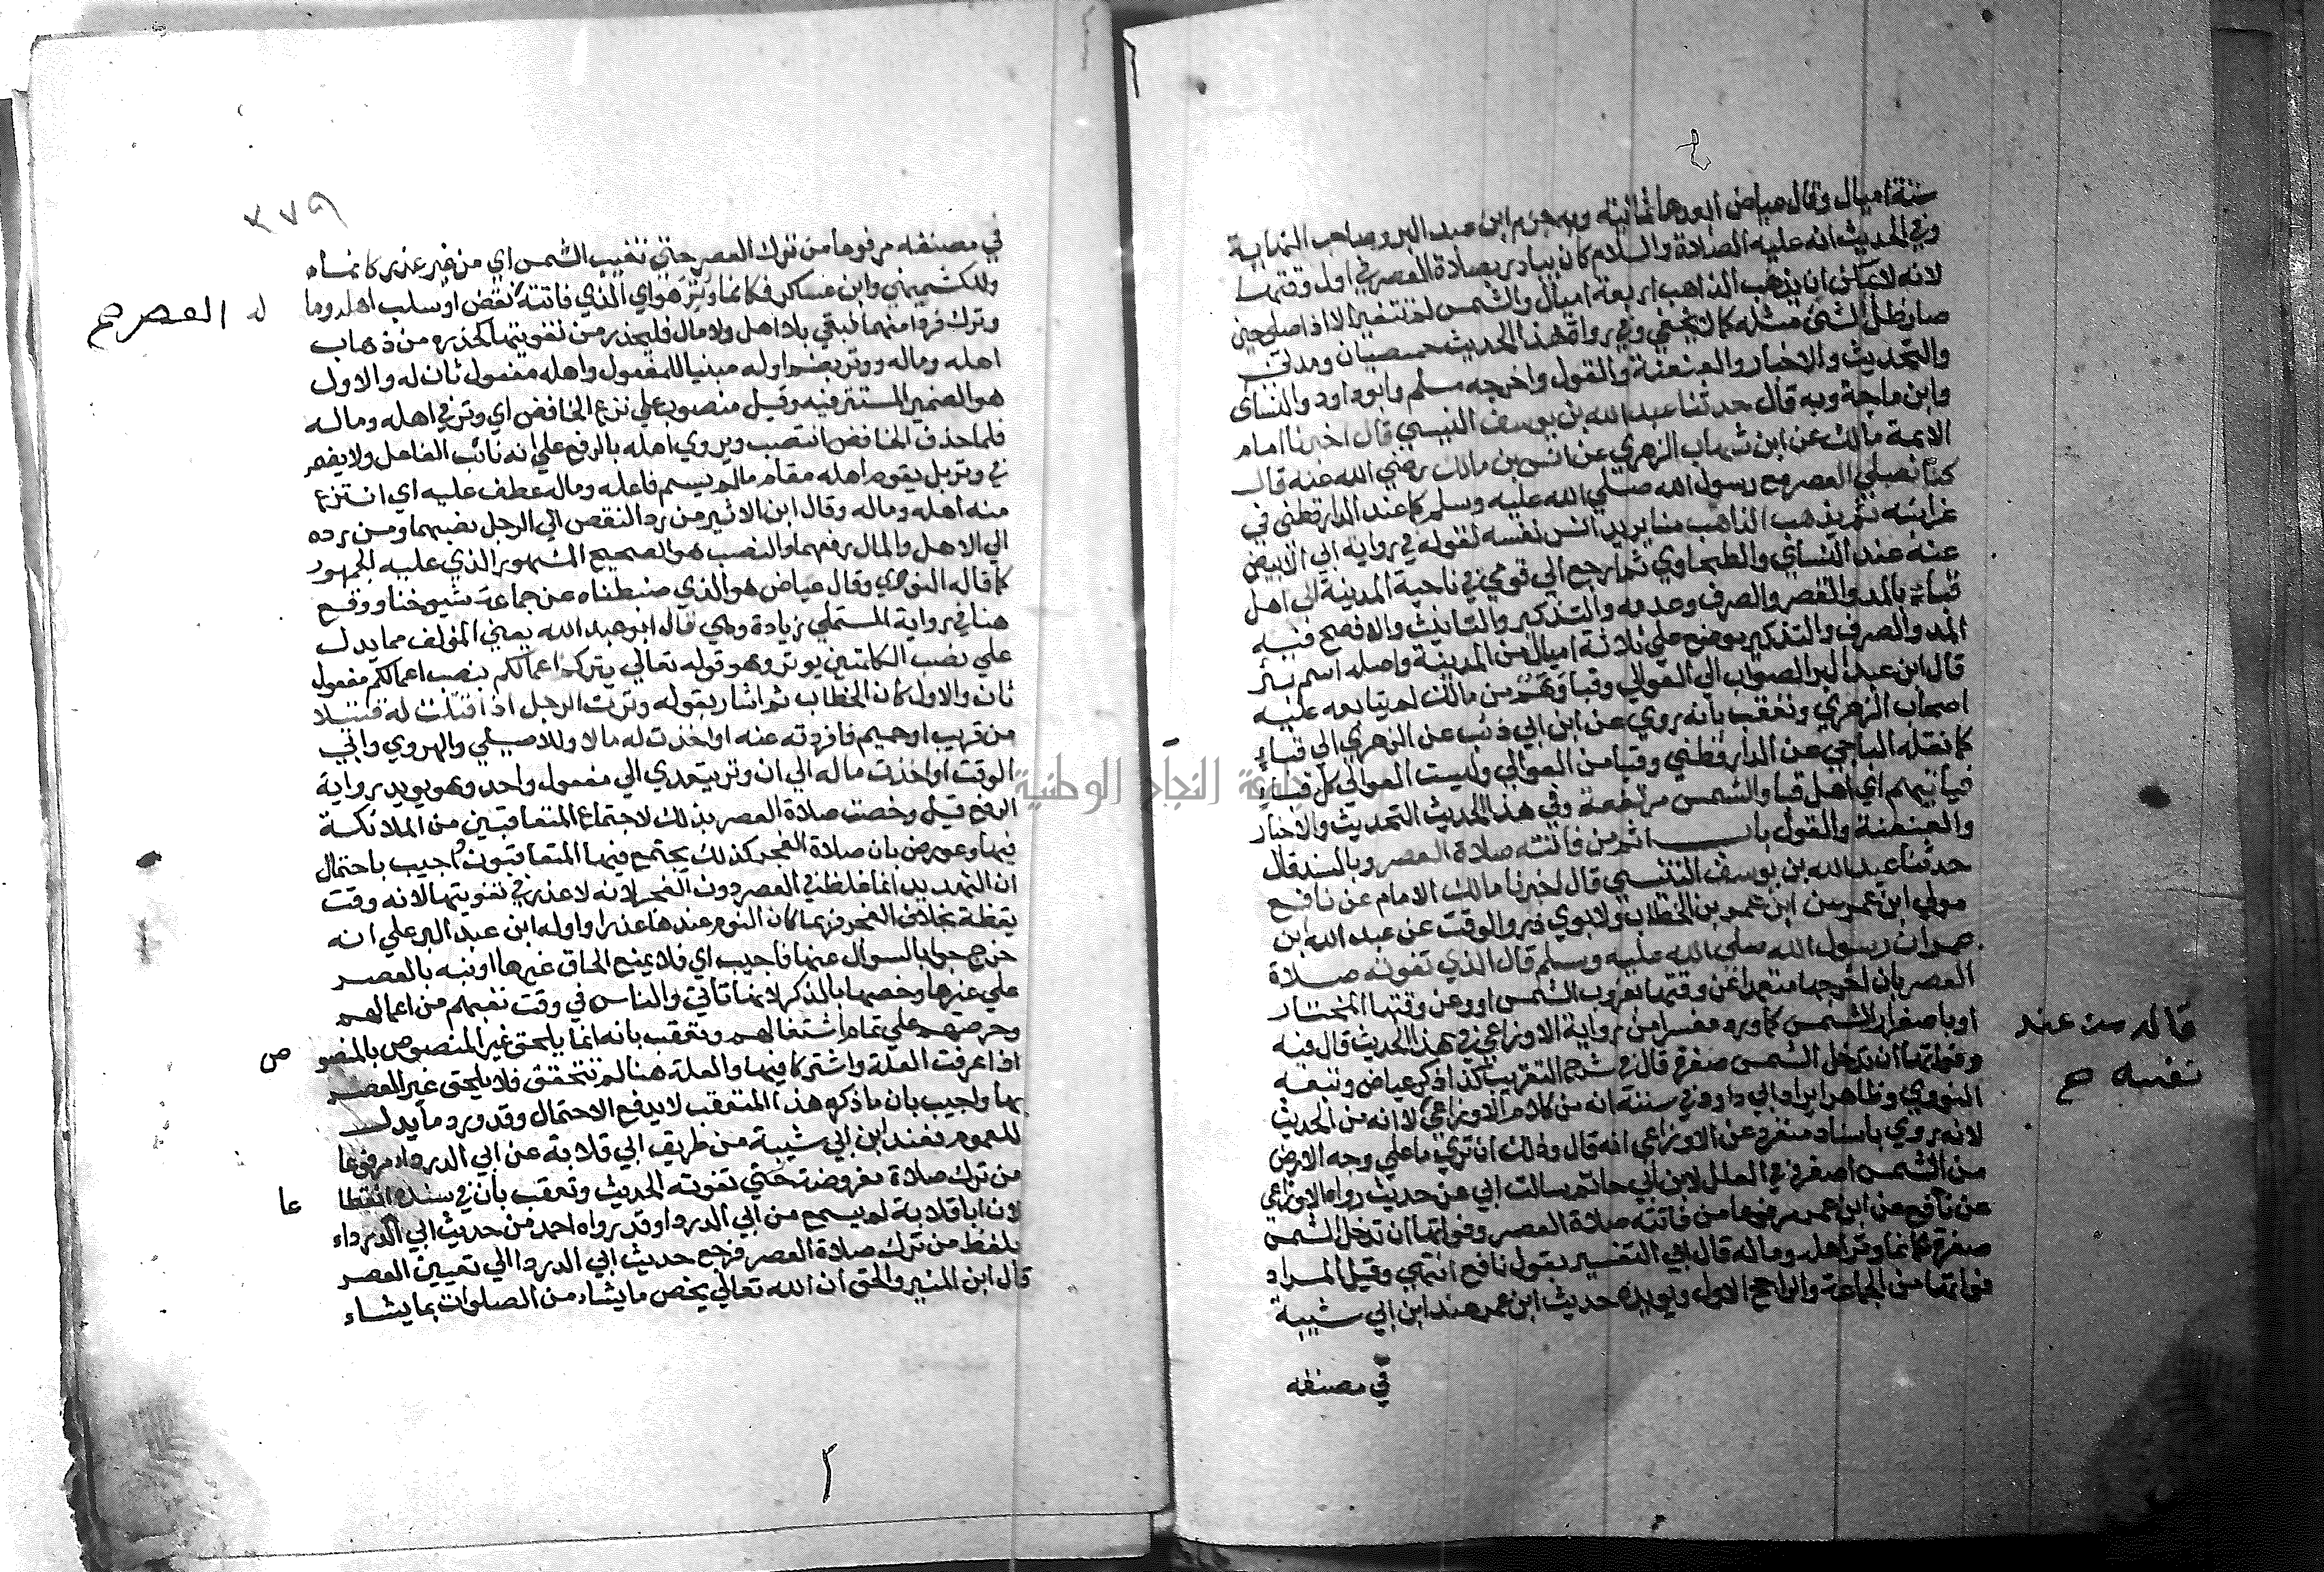 ستة اميال وقال عياض ابعدها ثمانية وبه جزم ابن عبد البر وصاحب النهاية
وفي الحديث انه عليه الصلاة والسلام كان يبادر بصلاة العصر في اول وقتها
لانه لا يمكن ان يذهب الذاهب اربعة اميال والشمس لم تتغير الا اذا صلى حين
صار ظل الشئ مثله كما لا يخفي وفي رواة هذا الحديث حمصيان ومدني
والتحديث والاخبار والعنعنة والقول واخرجه مسلم وابو داود والنساي
وابن ماجة وبه قال حدثنا عبد الله بن يوسف التنيسي قال اخبرنا امام
الايمة مالك عن ابن شهاب الزهري عن انس بن مالك رضي الله عنه قال
كنا نصلي العصر مع رسول الله صلي الله عليه وسلم كما عند الدارقطني في
غرائبه ثم يذهب الذاهب منا يريد انس نفسه لقوله في رواية ابي الابيض
عنه عند النساي والطحاوي ثم ارجع الي قومي في ناحية المدينة الى اهل
قباء بالمد والقصر والصرف وعدمه والتذكير والتانيث والافصح فيه
المد والصرف والتذكير موضع علي ثلاثة اميال من المدينة واصله اسم بئر
قال ابن عبد البر الصواب الي العوالي وقبا وهم من مالك لم يتابعه عليه
اصحاب الزهري وتعقب بانه روي عن ابن ابي ذئب عن الزهري الي قباء
كما نقله الباجي عن الدارقطني وقبا من العوالي وليست العوالي كل قباء
فياتيهم اي اهل قبا والشمس مرتفعة وفي هذا الحديث التحديث والاخبار
والعنعنة والقول باب اثم من فاتته صلاة العصر وبالسند قال
حدثنا عبد الله بن يوسف التنيسي قال اخبرنا مالك الامام عن نافع
مولي ابن عمر بن الخطاب ولابوي ذر والوقت عن عبد الله ابن
عمر ان رسول الله صلى الله عليه وسلم قال الذي تفوته صلاة
العصر بان اخرجها متعمدا عن وقتها بغروب الشمس او عن وقتها المختار
او باصفرار الشمس كما ورد مفسرا من رواية الاوزاعي في هذا الحديث قال فيه
وفواتها ان تدخل الشمس صفرة قال في شرح التقريب كذا ذكر عياض وتبعه
النووي وظاهر ايراد ابي داود في سننه انه من كلام الاوزاعي لا انه من الحديث
لانه روي باسناد منفرد عن الاوزاعي انه قال وذلك ان تري ما علي وجه الارض
من الشمس اصفر وفي العلل لابن ابي حاتم سالت ابي عن حديث رواه الاوزاعي
عن نافع عن ابن عمر مرفوعا من فاتته صلاة العصر وفواتها ان تدخل الشمس
صفرة فكانما وتر اهله وماله قال ابي التفسير بقول نافع انتهي وقيل المراد
فواتها من الجماعة والراجح الاول ويويده حديث ابن عمر عند ابن ابي شيبة
في مصنفه
قاله من عند
نفسه صح
٣٧٩
في مصنفه مرفوعا من ترك العصر حتي تغيب الشمس اي من غير عذر كانما
وللكشميهني وابن عساكر فكانما وتر هو اي الذي فاتته نقص او سلب اهله وما
له العصر صح
وترك فردا منهما فبقي بلا اهل ولا مال فليحذر من تفويتها كحذره من ذهاب
اهله وماله ووتر بضم اوله مبنيا للمفعول واهله مفعول ثان له والاول
هو الضمير المستتر فيه وقيل منصوب علي نزع الخافض اي وتر في اهله وماله
فلما حذف الخافض انتصب ويروي اهله بالرفع علي انه نائب الفاعل ولا يضمر
في وتر بل يقوم اهله مقام مالم يسم فاعله وماله عطف عليه اي انتزع
منه اهله وماله وقال ابن الاثير من رد النقص الي الرجل نصبهما ومن رده
الي الاهل والمال رفعهما والنصب هو الصحيح المشهور الذي عليه الجمهور
كما قاله النووي وقال عياض هو الذي ضبطناه عن جماعة شيوخنا ووقع
هنا في رواية المستملي زيادة وهي قال ابو عبد الله يعني المؤلف مما يدل
علي نصب الكلمتين بوتر وهو قوله تعالي يتركم اعمالكم بنصب اعمالكم مفعول
ثان والاول كان الخطاب ثم اشار بقوله وترت الرجل اذا قتلت له قتيلا
من قريب او حميم فافردته عنه او اخذت له مالا وللاصيلي والهروي وابي
الوقت او اخذت ماله الي ان وتر يتعدي الي مفعول واحد وهو يويد رواية
الرفع قيل وخصت صلاة العصر بذلك لاجتماع المتعاقبين من الملائكة
فيها وعورض بان صلاة الفجر كذلك يجتمع فيها المتعاقبون اجيب باحتمال
ان التهديد انما غلظ في العصر دون الفجر لانه لا عذر في تفويتها لانه وقت
يقظة بخلاف الفجر فربما كان النوم عندها عذرا واوله ابن عبد البر علي انه
خرج جوابا لسوال عنها فاجيب اي فلا يمنع الحاق غيرها او نبه بالعصر
علي غيرها وخصها بالذكر لانها تاتي والناس في وقت تعبهم من اعمالهم
وحرصهم علي تمام اشتغالهم وتعقب بانه انما يلحق غير المنصوص بالمنصو ص
اذا عرفت العلة واشتركا فيها والعلة هنا لم تتحقق فلا يلحق غير العصر
بها واجيب بان ما ذكره هذا المتعقب لا يدفع الاحتمال وقد ورد ما يدل
للعموم فعند ابن ابي شيبة من طريق ابي قلابة عن ابي الدرداء مرفوعا
من ترك صلاة مفروضة حتي تفوته الحديث وتعقب بان في سنده انقطا عا
لان ابا قلابة لم يسمع من ابي الدرداء وقد رواه احمد من حديث ابي الدرداء
بلفظ من ترك صلاة العصر فرجع حديث ابي الدرداء الي تعيين العصر
قال ابن المنير والحق ان الله تعالي يخص ما يشاء من الصلوات بما يشاء
النجاح الوطنية